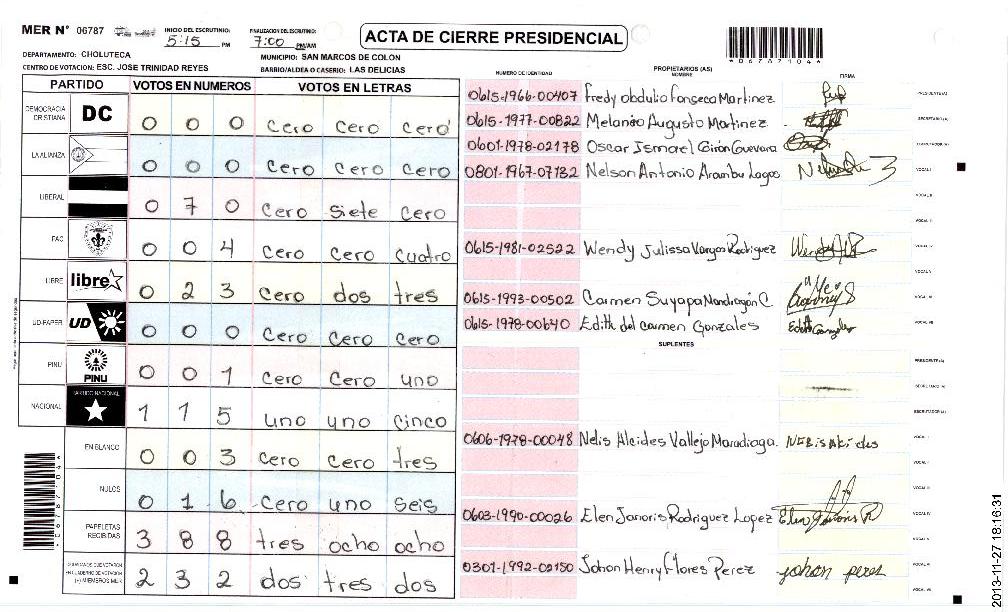 MER N° 06787
INICIO DEL ESCRUTINIO: 5:15 PM
FINALIZACION DEL ESCRUTINIO: 7:00 PM/AM
ACTA DE CIERRE PRESIDENCIAL
*06787104*
DEPARTAMENTO: CHOLUTECA
MUNICIPIO: SAN MARCOS DE COLON
CENTRO DE VOTACION: ESC. JOSE TRINIDAD REYES
BARRIO/ALDEA O CASERIO: LAS DELICIAS
PARTIDO VOTOS EN NUMEROS VOTOS EN LETRAS
DEMOCRACIA CRISTIANA DC 0 0 0 Cero Cero Cero
LA ALIANZA 0 0 0 Cero Cero Cero
LIBERAL 0 7 0 Cero Siete Cero
PAC 0 0 4 Cero Cero Cuatro
LIBRE libre 0 2 3 Cero dos tres
UD-FAPER UD 0 0 0 Cero Cero Cero
PINU PINU 0 0 1 Cero Cero uno
NACIONAL PARTIDO NACIONAL 1 1 5 uno uno Cinco
EN BLANCO 0 0 3 Cero Cero tres
NULOS 0 1 6 Cero uno seis
PAPELETAS RECIBIDAS 3 8 8 tres ocho ocho
CIUDADANOS QUE VOTARON EN CUADERNO DE VOTACION (+) MIEMBROS MER 2 3 2 dos tres dos
NUMERO DE IDENTIDAD PROPIETARIOS (AS) NOMBRE FIRMA
0615-1966-00407 Fredy Obdulio Fonseca Martinez PRESIDENTE(A)
0615-1977-00822 Melanio Augusto Martinez SECRETARIO(A)
0601-1978-02178 Oscar Ismael Girón Guevara ESCRUTADOR(A)
0801-1967-07132 Nelson Antonio Arambu Lagos VOCAL I
VOCAL II
VOCAL III
0615-1981-02522 Wendy Julissa Vargas Rodriguez VOCAL IV
VOCAL V
0615-1993-00502 Carmen Suyapa Mondragón C VOCAL VI
0615-1978-00640 Edith del Carmen Gonzales VOCAL VII
SUPLENTES
PRESIDENTE(A)
SECRETARIO(A)
ESCRUTADOR(A)
0606-1978-00048 Nelis Alcides Vallejo Maradiaga. VOCAL I
VOCAL II
VOCAL III
0603-1990-00026 Elen Janoris Rodriguez Lopez VOCAL IV
VOCAL V
0301-1992-02150 Johon Henry Flores Perez johon peres VOCAL VI
VOCAL VII
2013-11-27 18:16:31